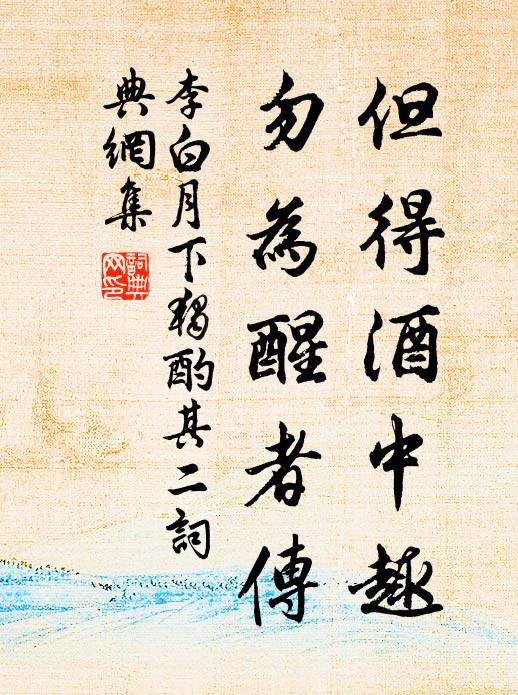 但得酒中趣
勿為醒者傳
李白月下獨酌其二詞
典網集
詞典網印